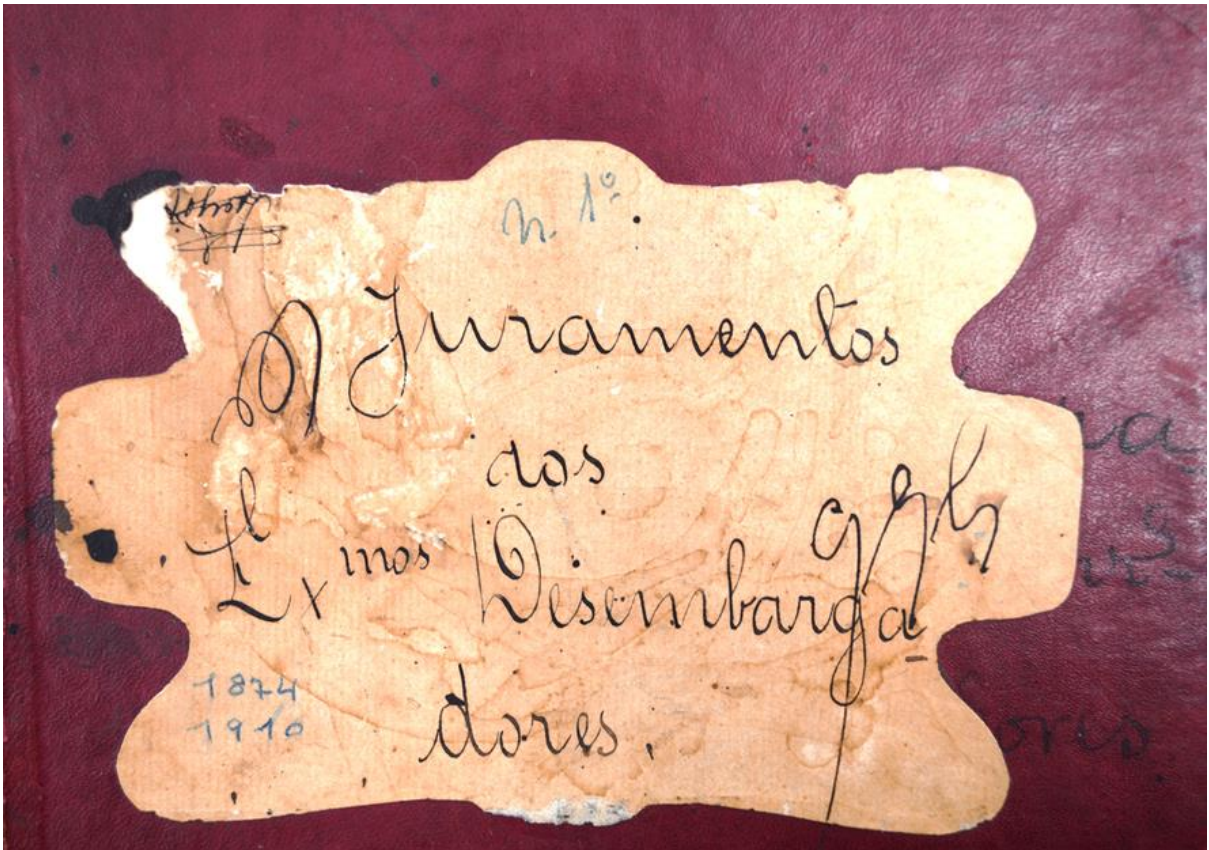 n. 1º
Juramentos
dos
Exmos Desembarga
dores.
1874
1910
ores